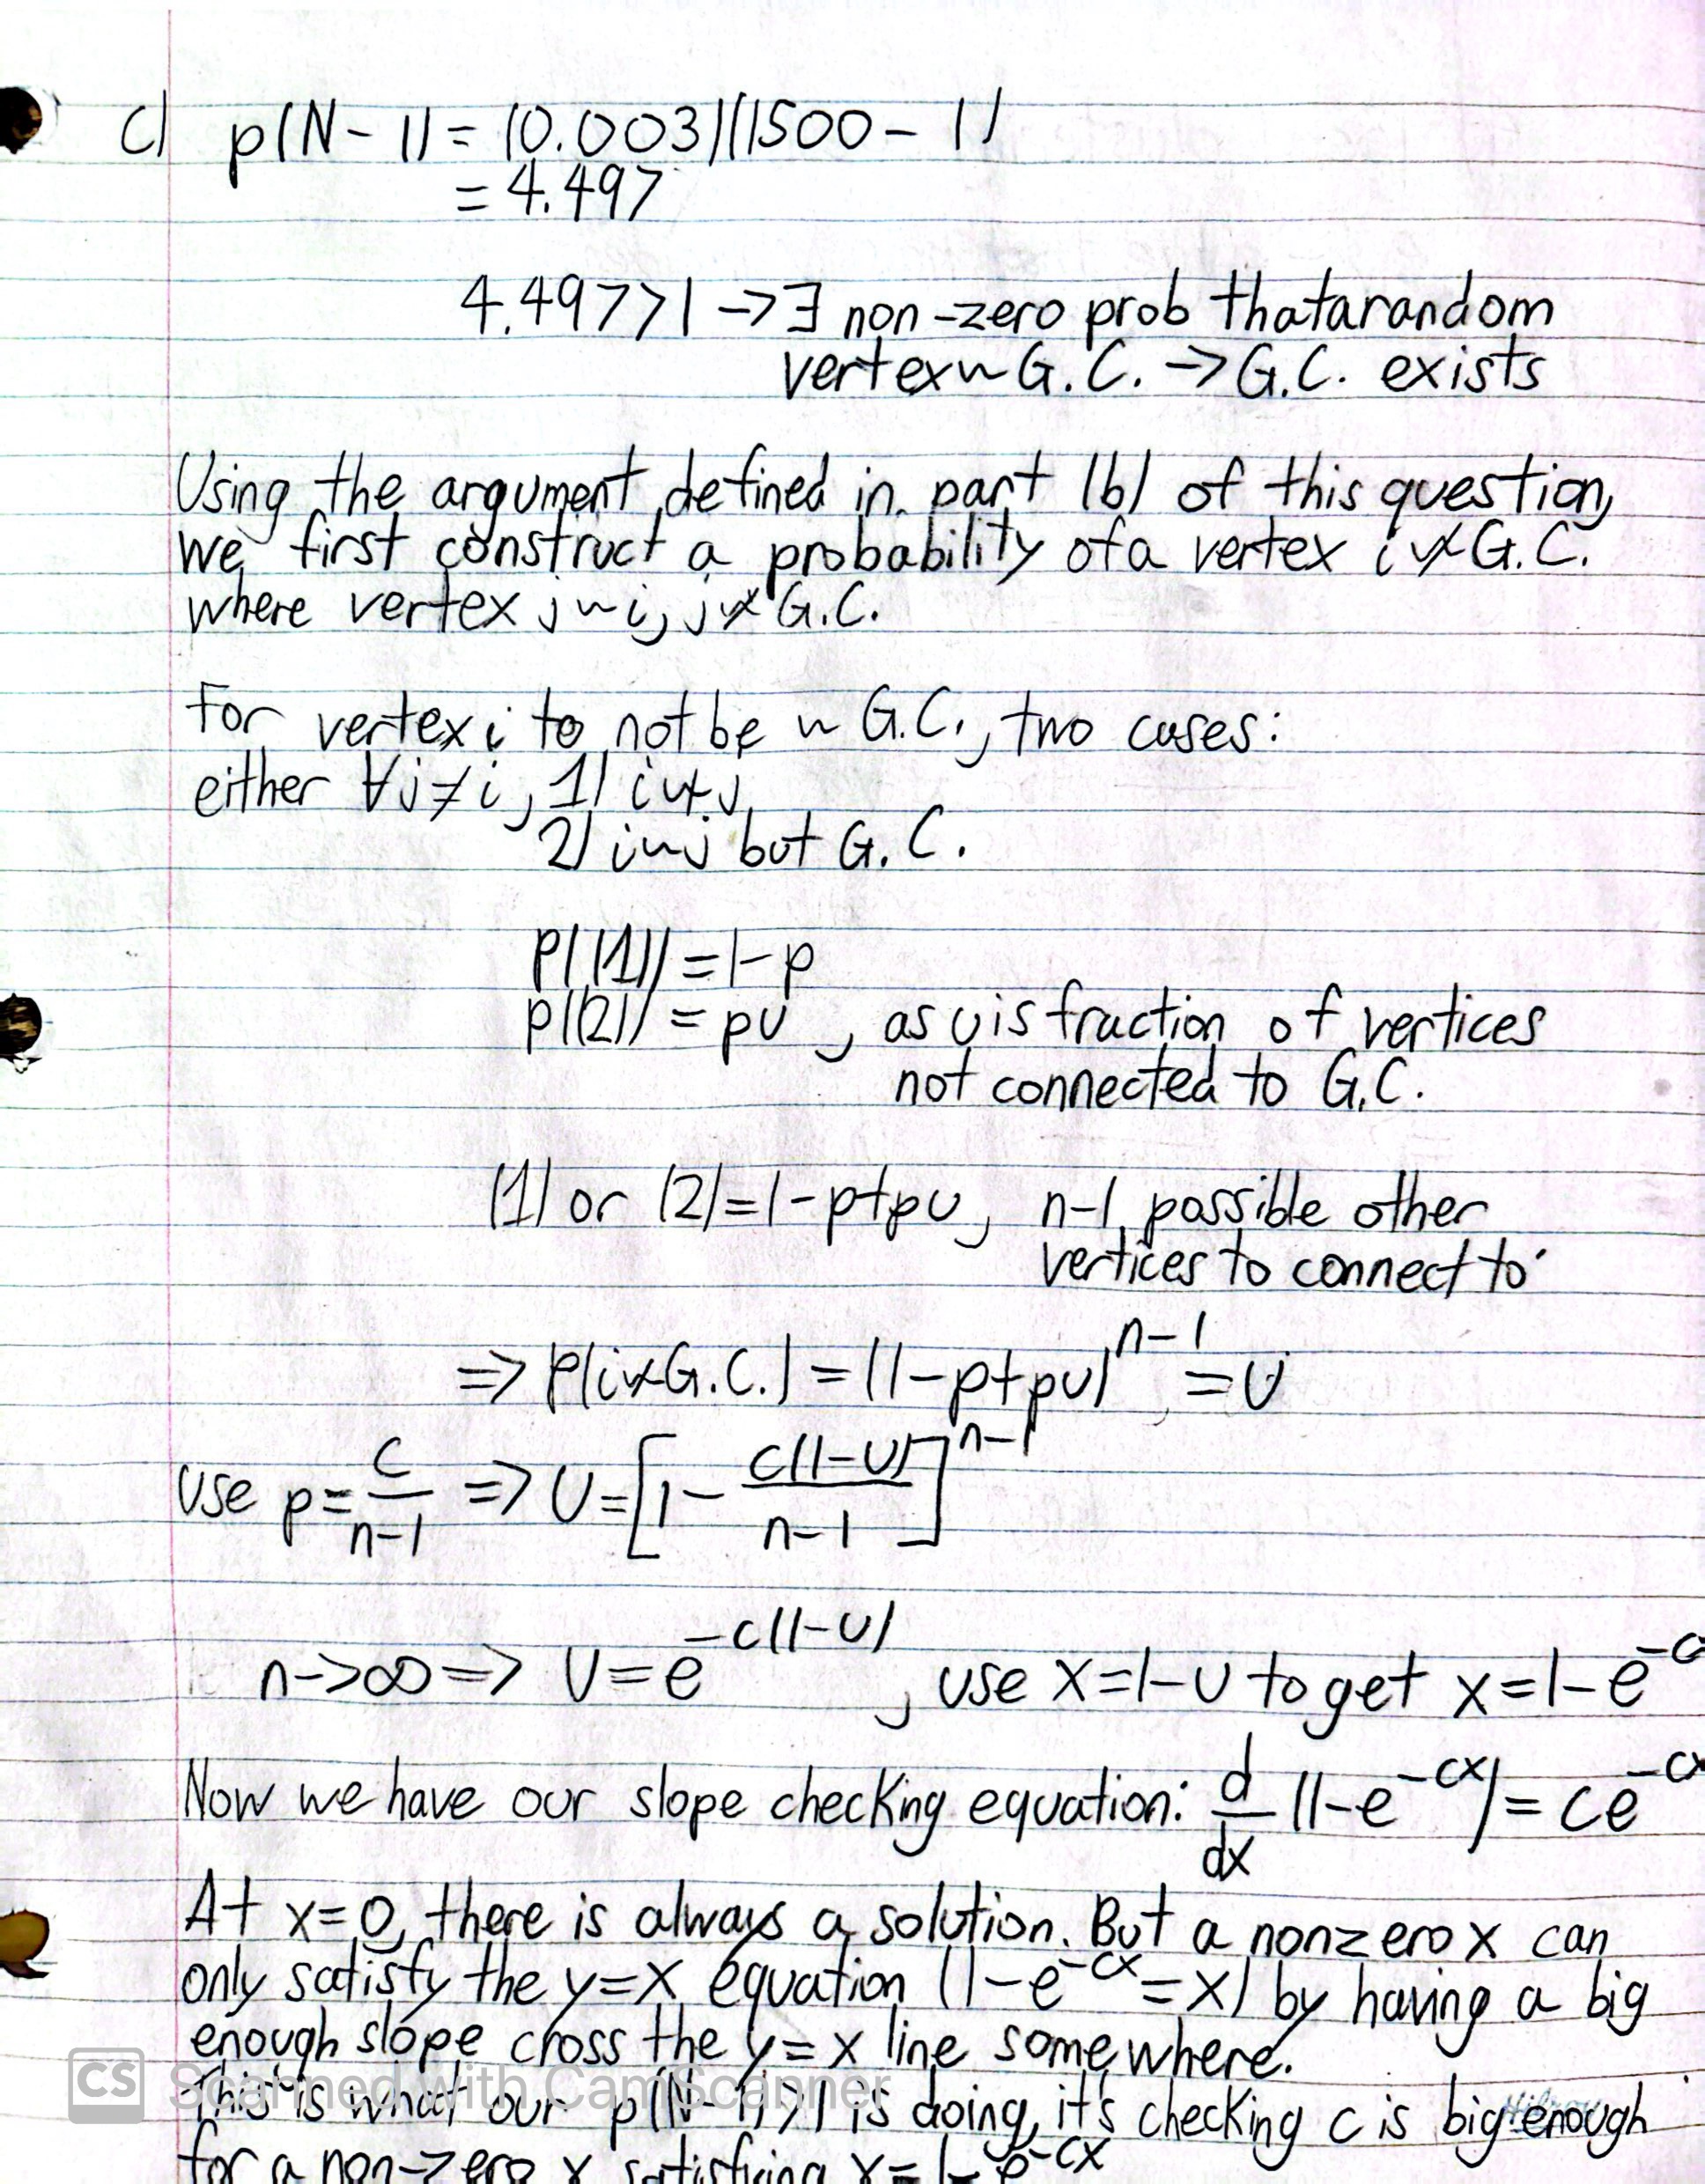 c) p(N-1) = (0.003)(1500-1)
= 4.497
4.497>>1 -> ∃ non-zero prob that a random
vertex ~ G.C. -> G.C. exists
Using the argument defined in part (b) of this question,
we first construct a probability of a vertex i ≁ G.C.
where vertex j ~ i, j ≁ G.C.
For vertex i to not be ~ G.C., two cases:
either ∀j≠i, 1) i≁j
2) i~j but G.C.
P((1)) = 1-p
P((2)) = pu, as u is fraction of vertices
not connected to G.C.
(1) or (2) = 1-p+pu, n-1 possible other
vertices to connect to
=> P(i≁G.C.) = (1-p+pu)^{n-1} = u
use p = \frac{c}{n-1} => u = [1 - \frac{c(1-u)}{n-1}]^{n-1}
n->∞ => u = e^{-c(1-u)}, use x=1-u to get x=1-e^{-c
Now we have our slope checking equation: \frac{d}{dx} (1-e^{-cx}) = ce^{-cx
At x=0, there is always a solution. But a nonzero x can
only satisfy the y=x equation (1-e^{-cx}=x) by having a big
enough slope cross the y=x line somewhere.
This is what our p(N-1)>1 is doing, it's checking c is big enough
for a non-zero x satisfying x=1-e^{-cx}
CS Scanned with CamScanner
Hilroy